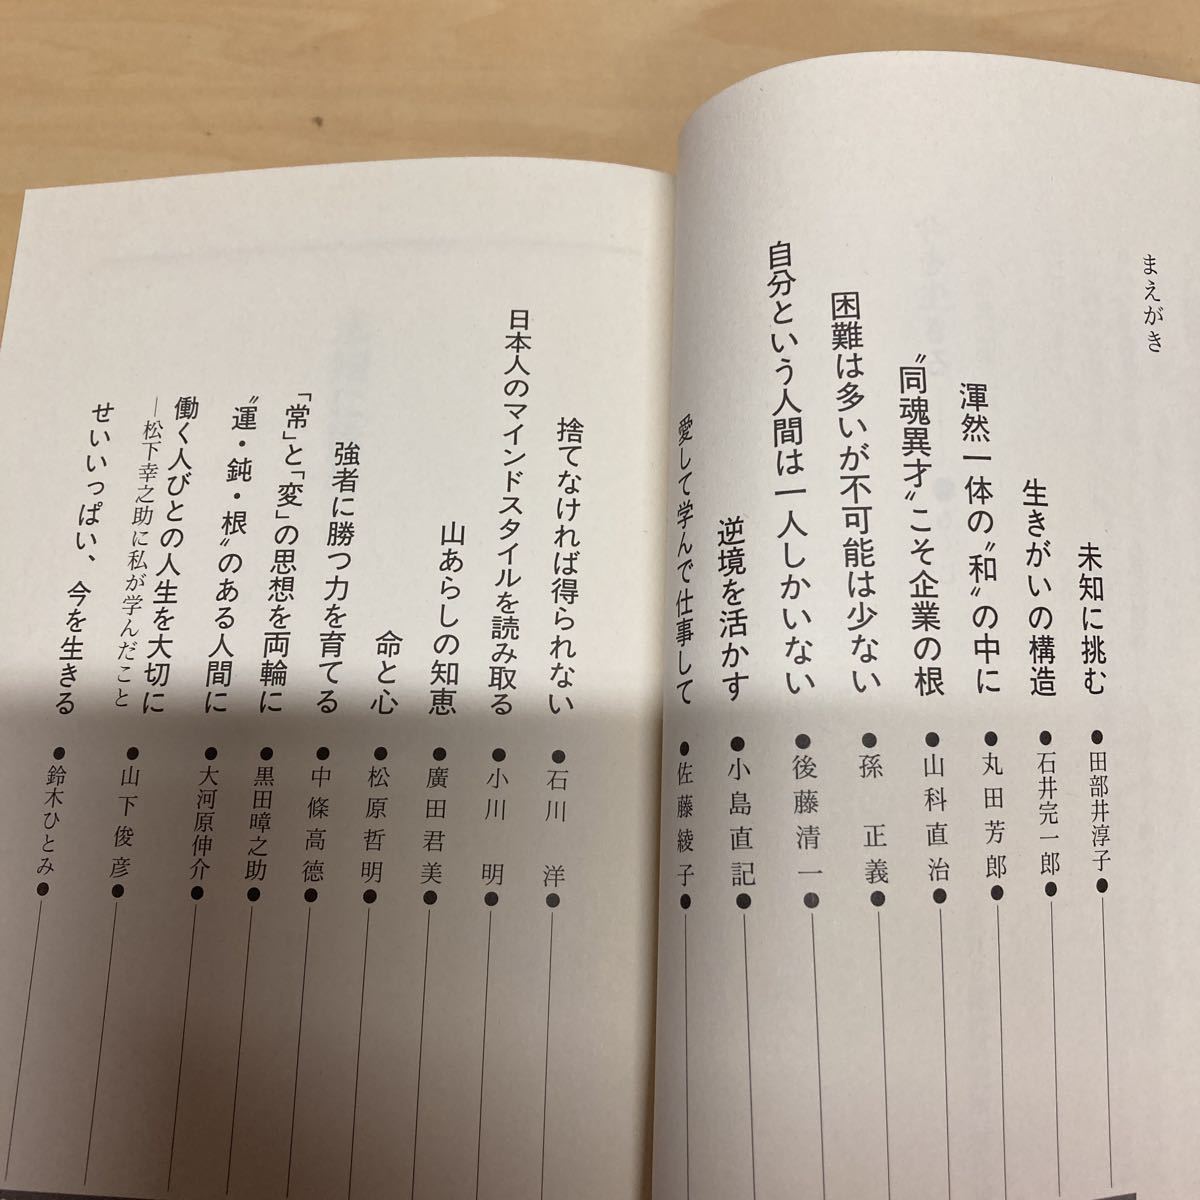 まえがき
未知に挑む●田部井淳子●
生きがいの構造●石井完一郎●
渾然一体の〝和〟の中に●丸田芳郎●
〝同魂異才〟こそ企業の根●山科直治●
困難は多いが不可能は少ない●孫 正義●
自分という人間は一人しかいない●後藤清一●
逆境を活かす●小島直記●
愛して学んで仕事して●佐藤綾子●
捨てなければ得られない●石川 洋●
日本人のマインドスタイルを読み取る●小川 明●
山あらしの知恵●廣田君美●
命と心●松原哲明●
強者に勝つ力を育てる●中條高德●
「常」と「変」の思想を両輪に●黒田暲之助●
〝運・鈍・根〟のある人間に●大河原伸介●
働く人びとの人生を大切に
―松下幸之助に私が学んだこと●山下俊彦●
せいいっぱい、今を生きる●鈴木ひとみ●